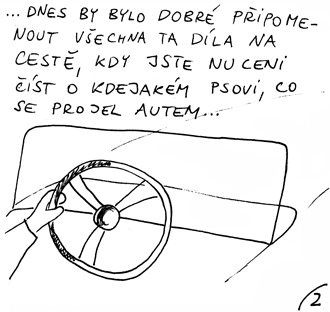 ... DNES BY BYLO DOBRÉ PŘIPOME-
NOUT VŠECHNA TA DÍLA NA
CESTĚ, KDY JSTE NUCENI
ČÍST O KDEJAKÉM PSOVI, CO
SE PROJEL AUTEM...
2